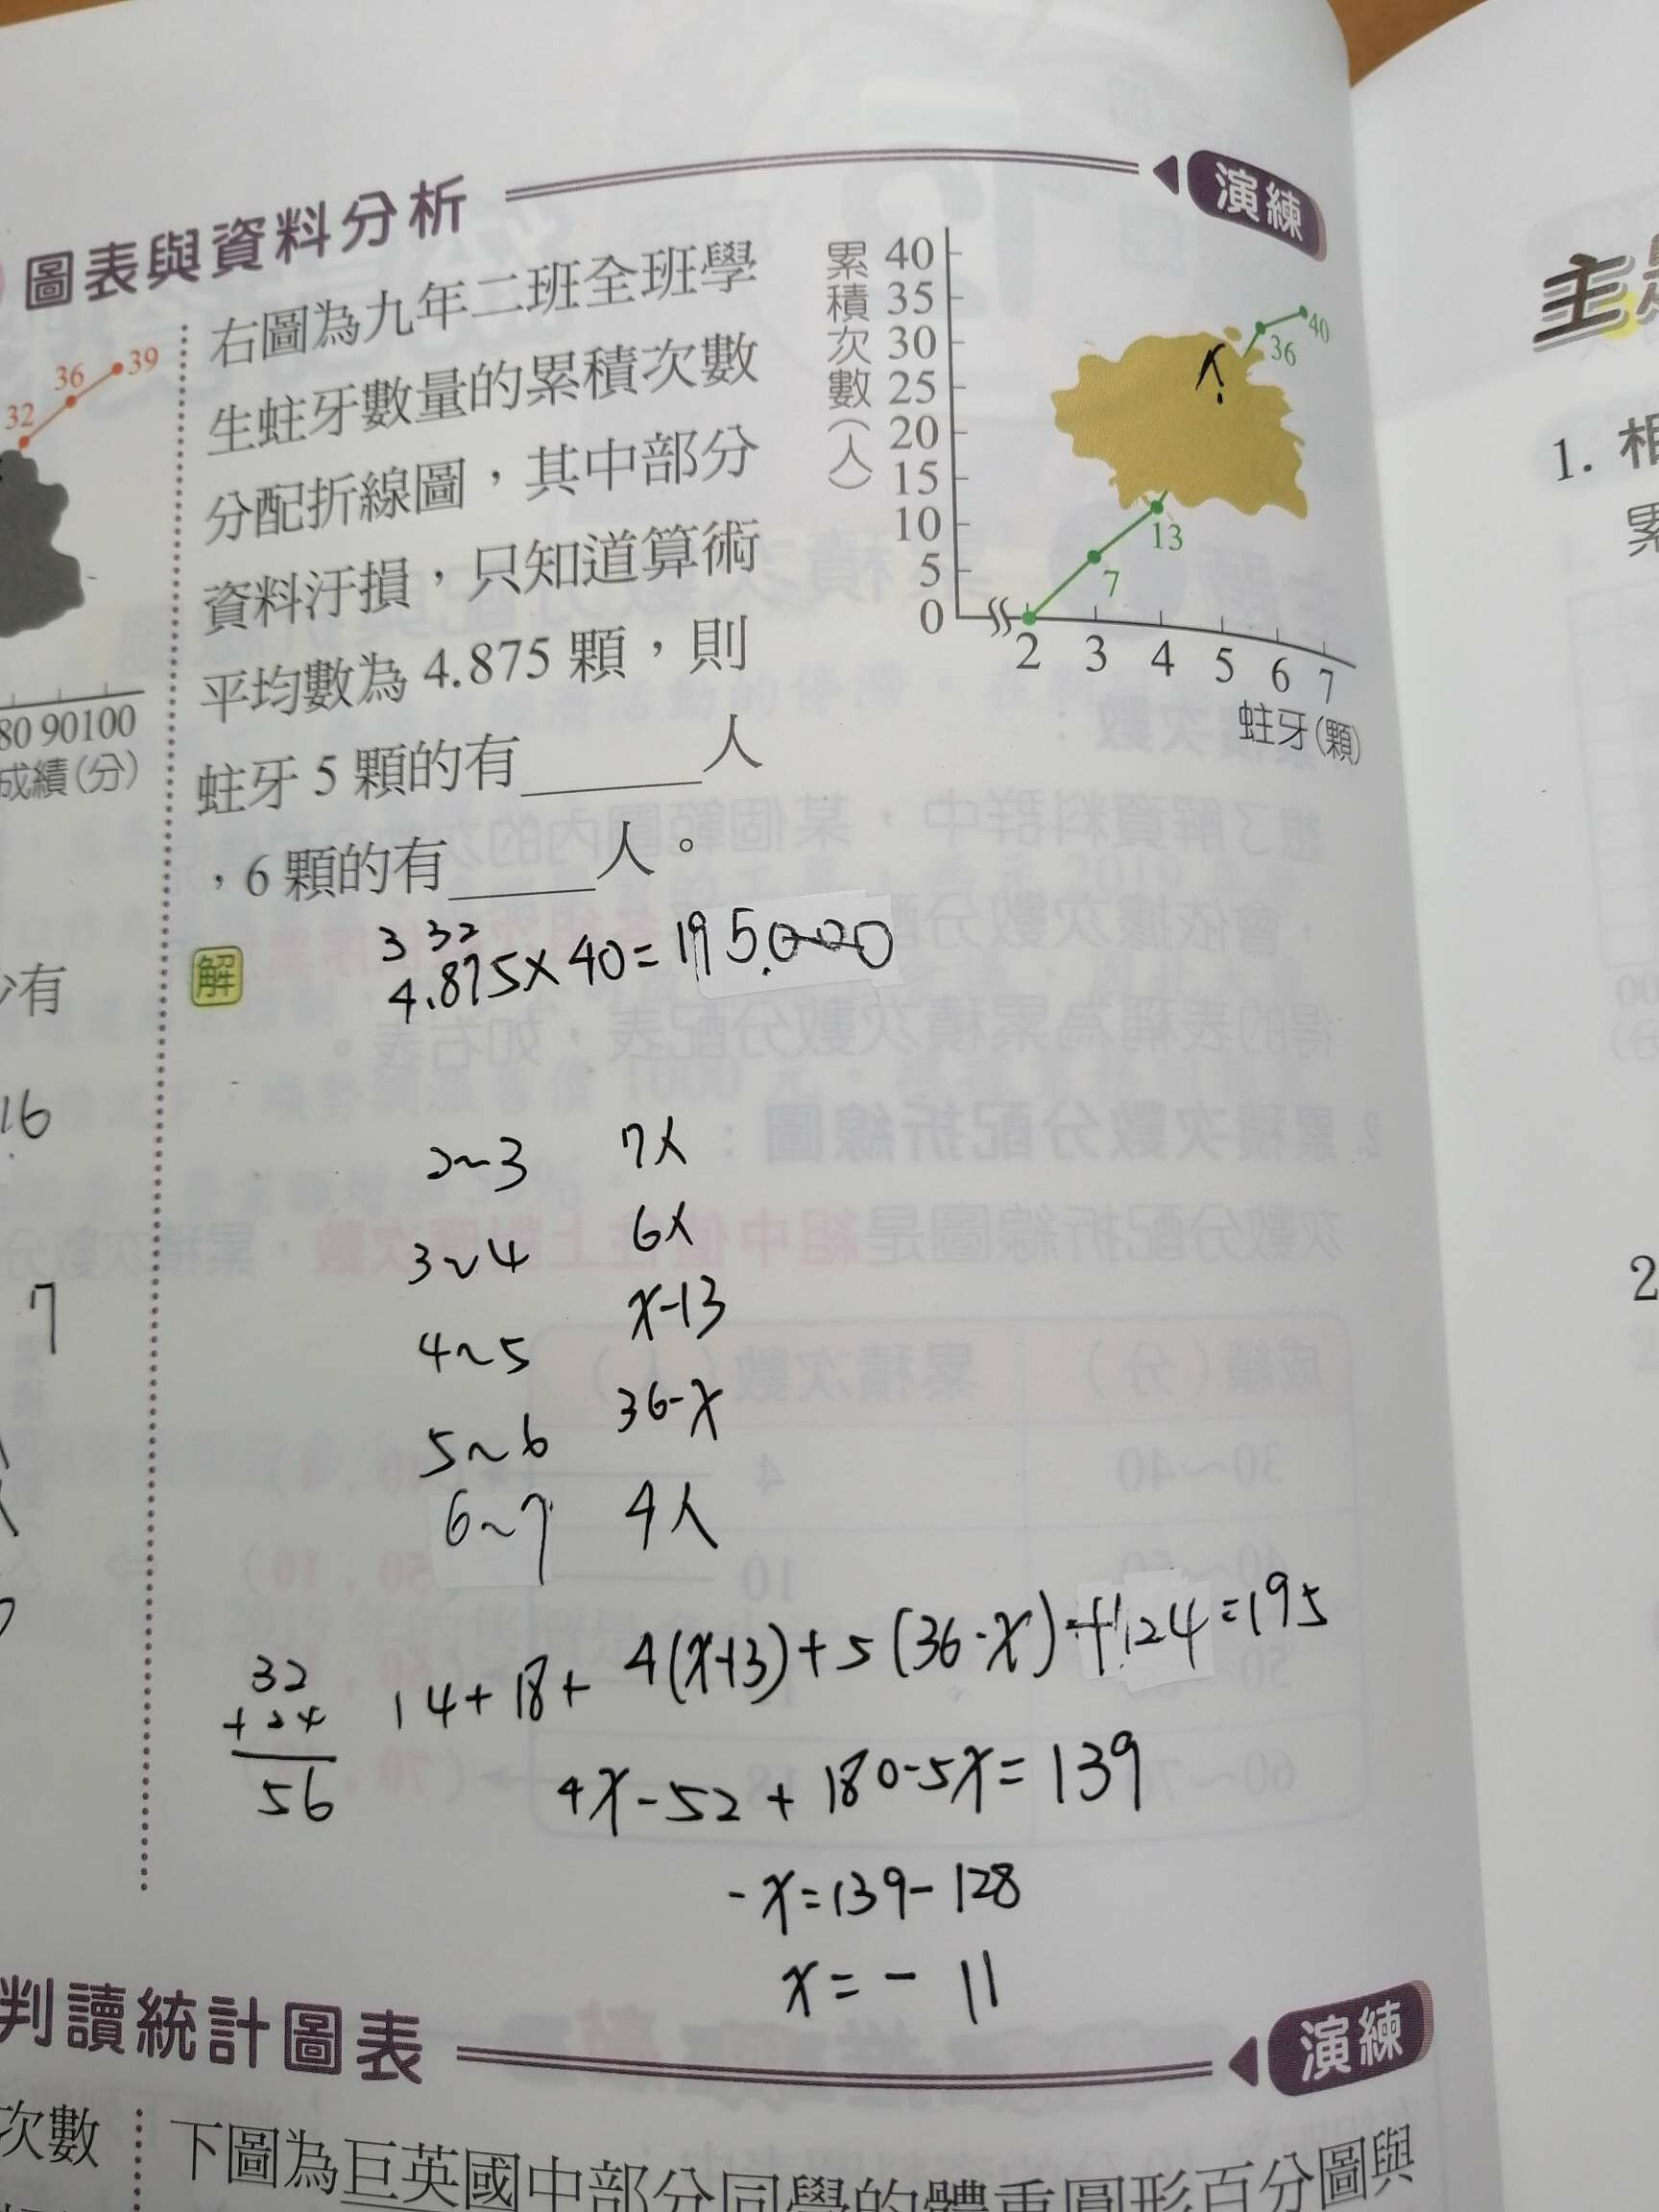 圖表與資料分析
演練
右圖為九年二班全班學
生蛀牙數量的累積次數
分配折線圖，其中部分
資料汙損，只知道算術
平均數為 4.875 顆，則
蛀牙 5 顆的有______人
，6 顆的有______人。
累積次數（人）
40
35
30
25
20
15
10
5
0
2 3 4 5 6 7
蛀牙(顆)
7
13
36
40
32
36
39
80 90 100
成績(分)
有
16
7
解
3 32
4.875×40=195.000
2~3 7人
3~4 6人
4~5 x-13
5~6 36-x
6~7 4人
14+18+4(x-13)+5(36-x)+24=195
32
+24
56
4x-52+180-5x=139
-x=139-128
x=-11
判讀統計圖表
演練
次數
下圖為巨英國中部分同學的體重圓形百分圖與
主
1. 相
累
2